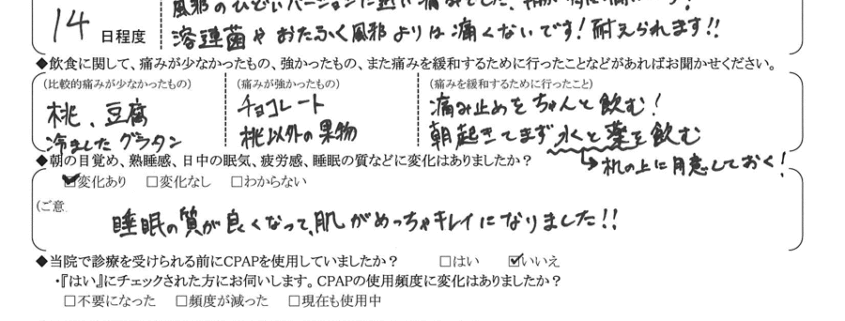 風邪のひどいバージョンに近い痛みでした、
14 日程度
溶連菌やおたふく風邪よりは痛くないです!耐えられます!!
◆飲食に関して、痛みが少なかったもの、強かったもの、また痛みを緩和するために行ったことなどがあればお聞かせください。
(比較的痛みが少なかったもの) (痛みが強かったもの) (痛みを緩和するために行ったこと)
桃、豆腐 チョコレート 痛み止めをちゃんと飲む!
冷ましたグラタン 桃以外の果物 朝起きてまず水と薬を飲む
→机の上に用意しておく!
◆朝の目覚め、熟睡感、日中の眠気、疲労感、睡眠の質などに変化はありましたか?
☑変化あり □変化なし □わからない
(ご意
睡眠の質が良くなって、肌がめっちゃキレイになりました!!
◆当院で診療を受けられる前にCPAPを使用していましたか? □はい ☑いいえ
・『はい』にチェックされた方にお伺いします。CPAPの使用頻度に変化はありましたか?
□不要になった □頻度が減った □現在も使用中